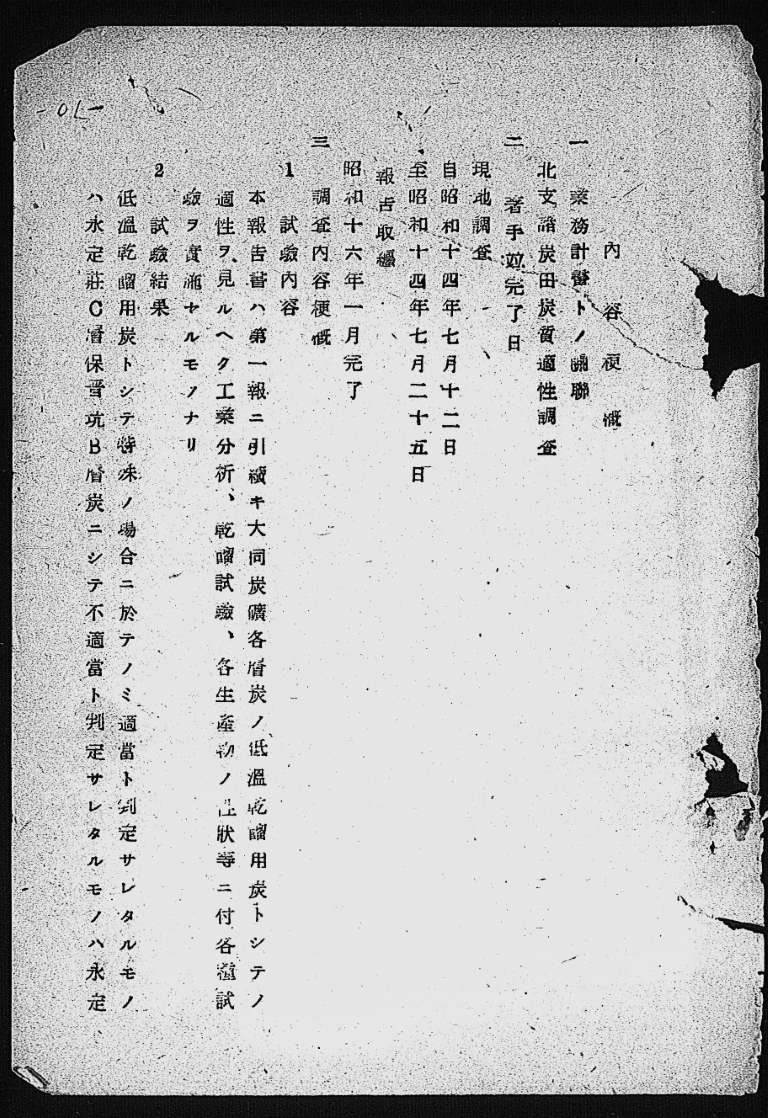 內容梗概
一 業務計畫トノ關聯
北支諸炭田炭質適性調査
二 著手竝完了日
現地調査
自昭和十四年七月十二日
至昭和十四年七月二十五日
報告取纒
昭和十六年一月完了
三 調査內容梗概
1 試驗內容
本報告書ハ第一報ニ引續キ大同炭礦各層炭ノ低溫乾餾用炭トシテノ
適性ヲ見ルヘク工業分析、乾餾試驗、各生產物ノ性狀等ニ付各種試
驗ヲ實施セルモノナリ
2 試驗結果
低溫乾餾用炭トシテ特殊ノ場合ニ於テノミ適當ト判定サレタルモノ
ハ永定莊C層保晋坑B層炭ニシテ不適當ト判定サレタルモノハ永定